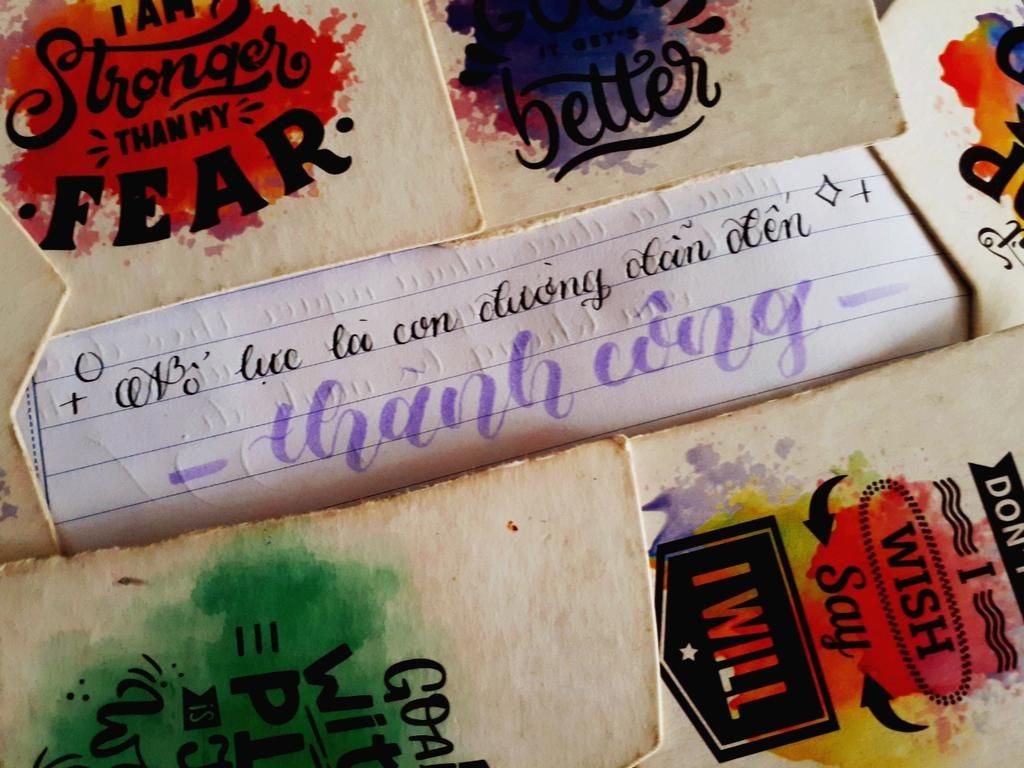 I AM
Stronger
THAN MY
FEAR
IT GET'S
better
Nỗ lực là con đường dẫn đến
thành công
DON'T
I
WISH
Say
I WILL
GOAL
Wit
IS